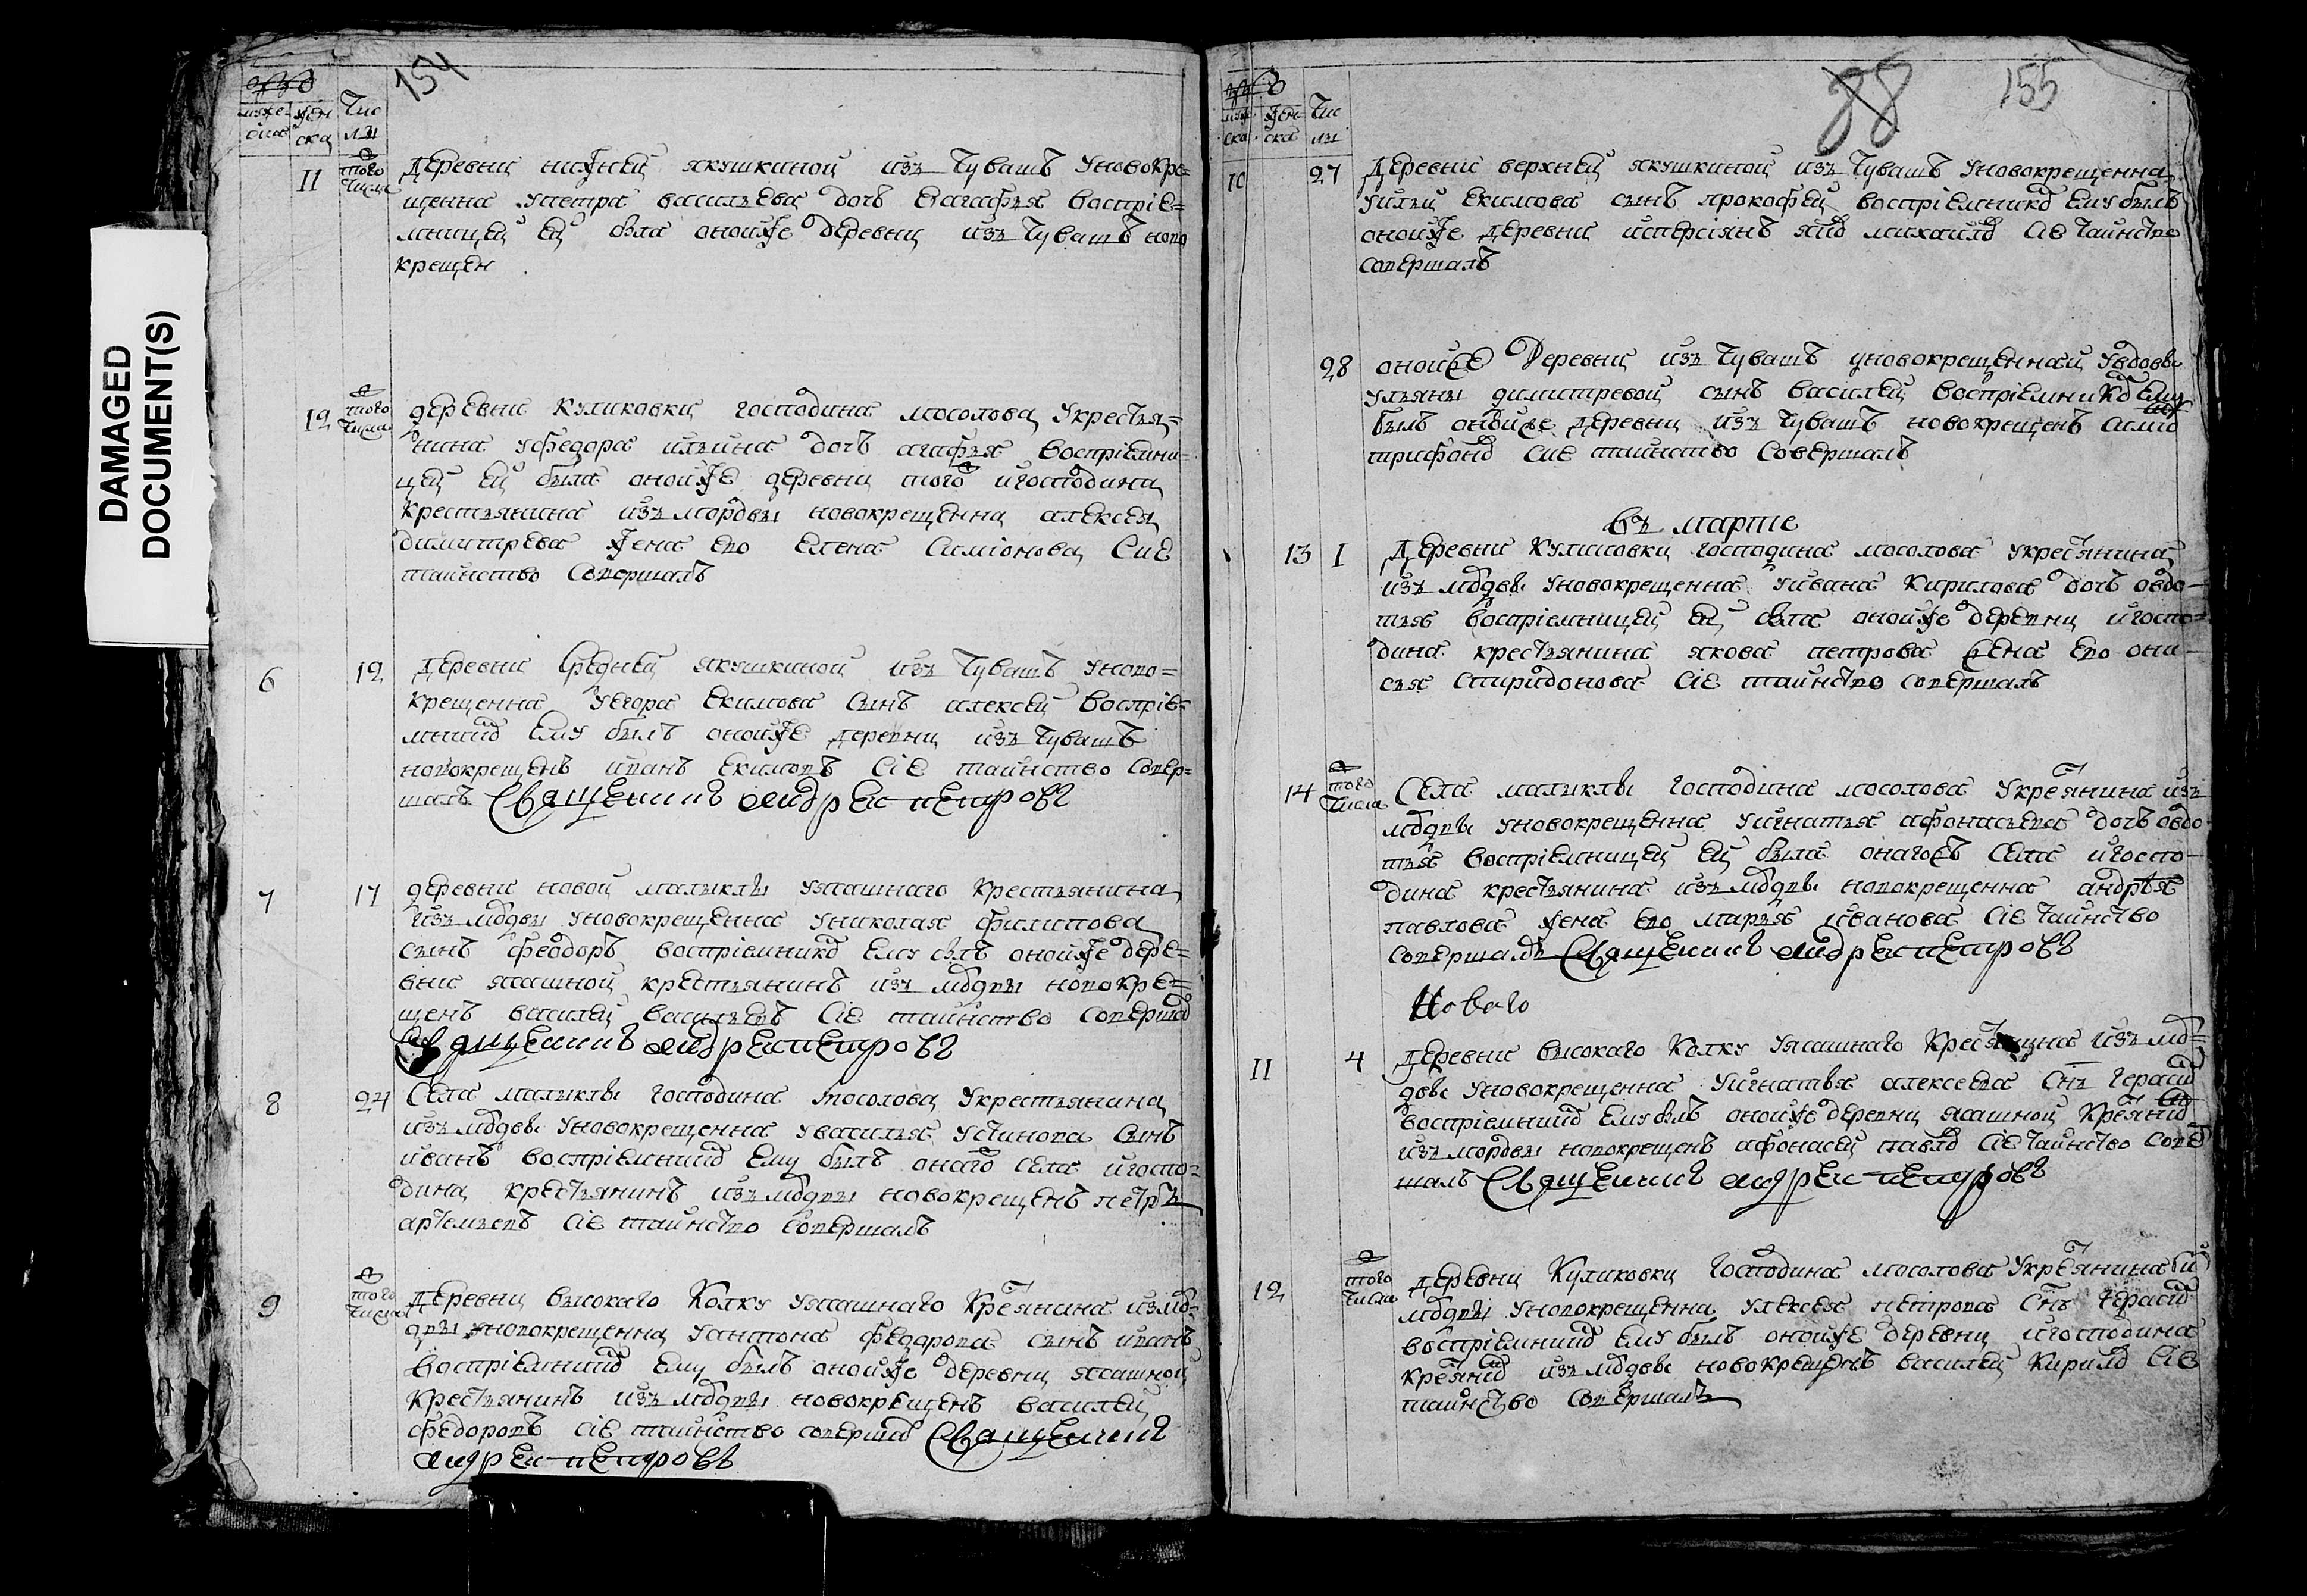 154
муже-
ска
жен
ска
Чис
лы
11
того
числа
Деревни нижней якушкиной изъ Чувашъ Уновокре=
щенна Упетра васильева дочь Евагафья воспріе=
мницей ей была онойже деревни изъ Чувашъ ново
крещен
12
того
числа
деревни Куликовки господина мосолова Укрестья=
нина Уфедора ильина дочь агафья воспріемни=
цей ей была онойже деревни того игосподина
Крестьянина изъ мордвы новокрещенна алексея
димитрева жена ево Елена Симіонова Сие
таинство Совершалъ
6
12
Деревни Средней якушкиной изъ Чувашъ Уново=
крещенна Уегора Екимова Сынъ алексей Воспріе=
мникъ Ему былъ онойже деревни изъ Чувашъ
новокрещенъ иванъ Екимовъ Сіе таинство Совер=
шалъ Священникъ андреи петровъ
7
17
деревни новой малыклы Уясашнаго Крестьянина
изъ мордвы Уновокрещенна Униколая филипова
сынъ феодоръ воспріемникъ Ему былъ онойже дере=
вни ясашной крестьянинъ изъ мордвы новокре=
щенъ василей васильевъ Сіе таинство Совершал
Священникъ андреи петровъ
8
24
Села малыклы господина мосолова Укрестьянина
изъ мордвы Уновокрещенна Увасилья Устинова Сынъ
иванъ воспріемникъ Ему былъ онаго села игоспо=
дина крестьянинъ изъ мордвы новокрещенъ петръ
артемьевъ Сіе таинство Совершалъ
9
того
числа
Деревни высокаго Колку Уясашнаго Крестьянина изъ мор=
двы Уновокрещенна Уантона федорова сынъ иванъ
Воспріемникъ Ему былъ онойже деревни ясашной
Крестьянинъ изъ мордвы новокрещенъ василей
федоровъ сіе таинство совершал Священникъ
андреи петровъ
88
155
муже
ска
жен
ска
Чис
лы
10
27
Деревни верхней якушкиной изъ Чувашъ Уновокрещенна
Уильи Екимова сынъ прокофей воспріемникъ Ему былъ
онойже деревни михаила Сіе таинство
совершалъ
28
онойже Деревни изъ Чувашъ Уновокрещеннай Увдовы
Ульяны димитревой сынъ василей воспріемникъ Ему
былъ онойже деревни изъ Чувашъ новокрещенъ
трифонъ Сие таинство Совершалъ
въ марте
13
1
Деревни Куликовки господина мосолова Укрестьянина
изъ мордвы Уновокрещенна Уивана Кирилова дочь овдо=
тья воспріемницей ей была онойже деревни игоспо=
дина крестьянина якова петрова жена ево они=
сья Спиридонова Сіе таинство совершалъ
14
того
числа
Села малыклы господина мосолова Укрестьянина изъ
мордвы Уновокрещенна Уигнатья афонасьева дочь овдо
тья воспріемницей ей была онагожъ села игоспо=
дина крестьянина изъ мордвы новокрещенна андрея
павлова жена ево марья иванова Сіе таинство
Совершалъ Священникъ андреи петровъ
Новаго
11
4
деревни Высокаго Колку Уясашнаго Крестьянина изъ мор=
двы Уновокрещенна Уигнатья алексеева Снъ герасим
воспріемникъ Ему былъ онойже деревни ясашной Крестьянинъ
изъ мордвы новокрещенъ афонасей павлов Сіе таинство Совер
шалъ Священникъ андреи петровъ
12
того
числа
деревни Куликовки Господина мосолова Укрестьянина из
мордвы Уновокрещенна Улексея петрова Снъ герасим
воспріемникъ Ему былъ онойже деревни игосподина
крестьянинъ изъ мордвы новокрещенъ василей Кирилов Сіе
таинство Совершалъ
DAMAGED
DOCUMENT(S)